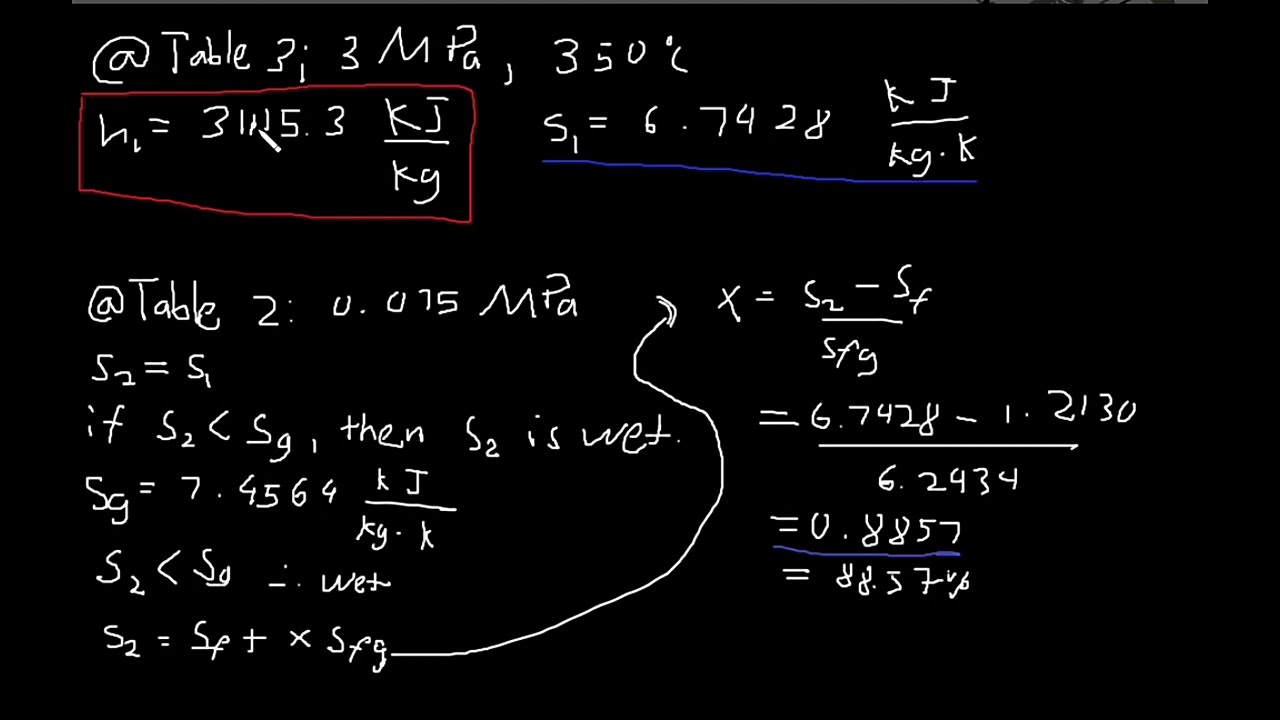 @Table 3; 3 MPa, 350°C
h₁ = 3115.3 kJ/kg
s₁ = 6.7428 kJ/kg·k
@Table 2: 0.075 MPa
s₂ = s₁
if s₂ < sg, then s₂ is wet.
sg = 7.4564 kJ/kg·k
s₂ < sg ∴ wet
s₂ = sf + x sfg
x = s₂ - sf / sfg
= 6.7428 - 1.2130 / 6.2434
= 0.8857
= 88.57%